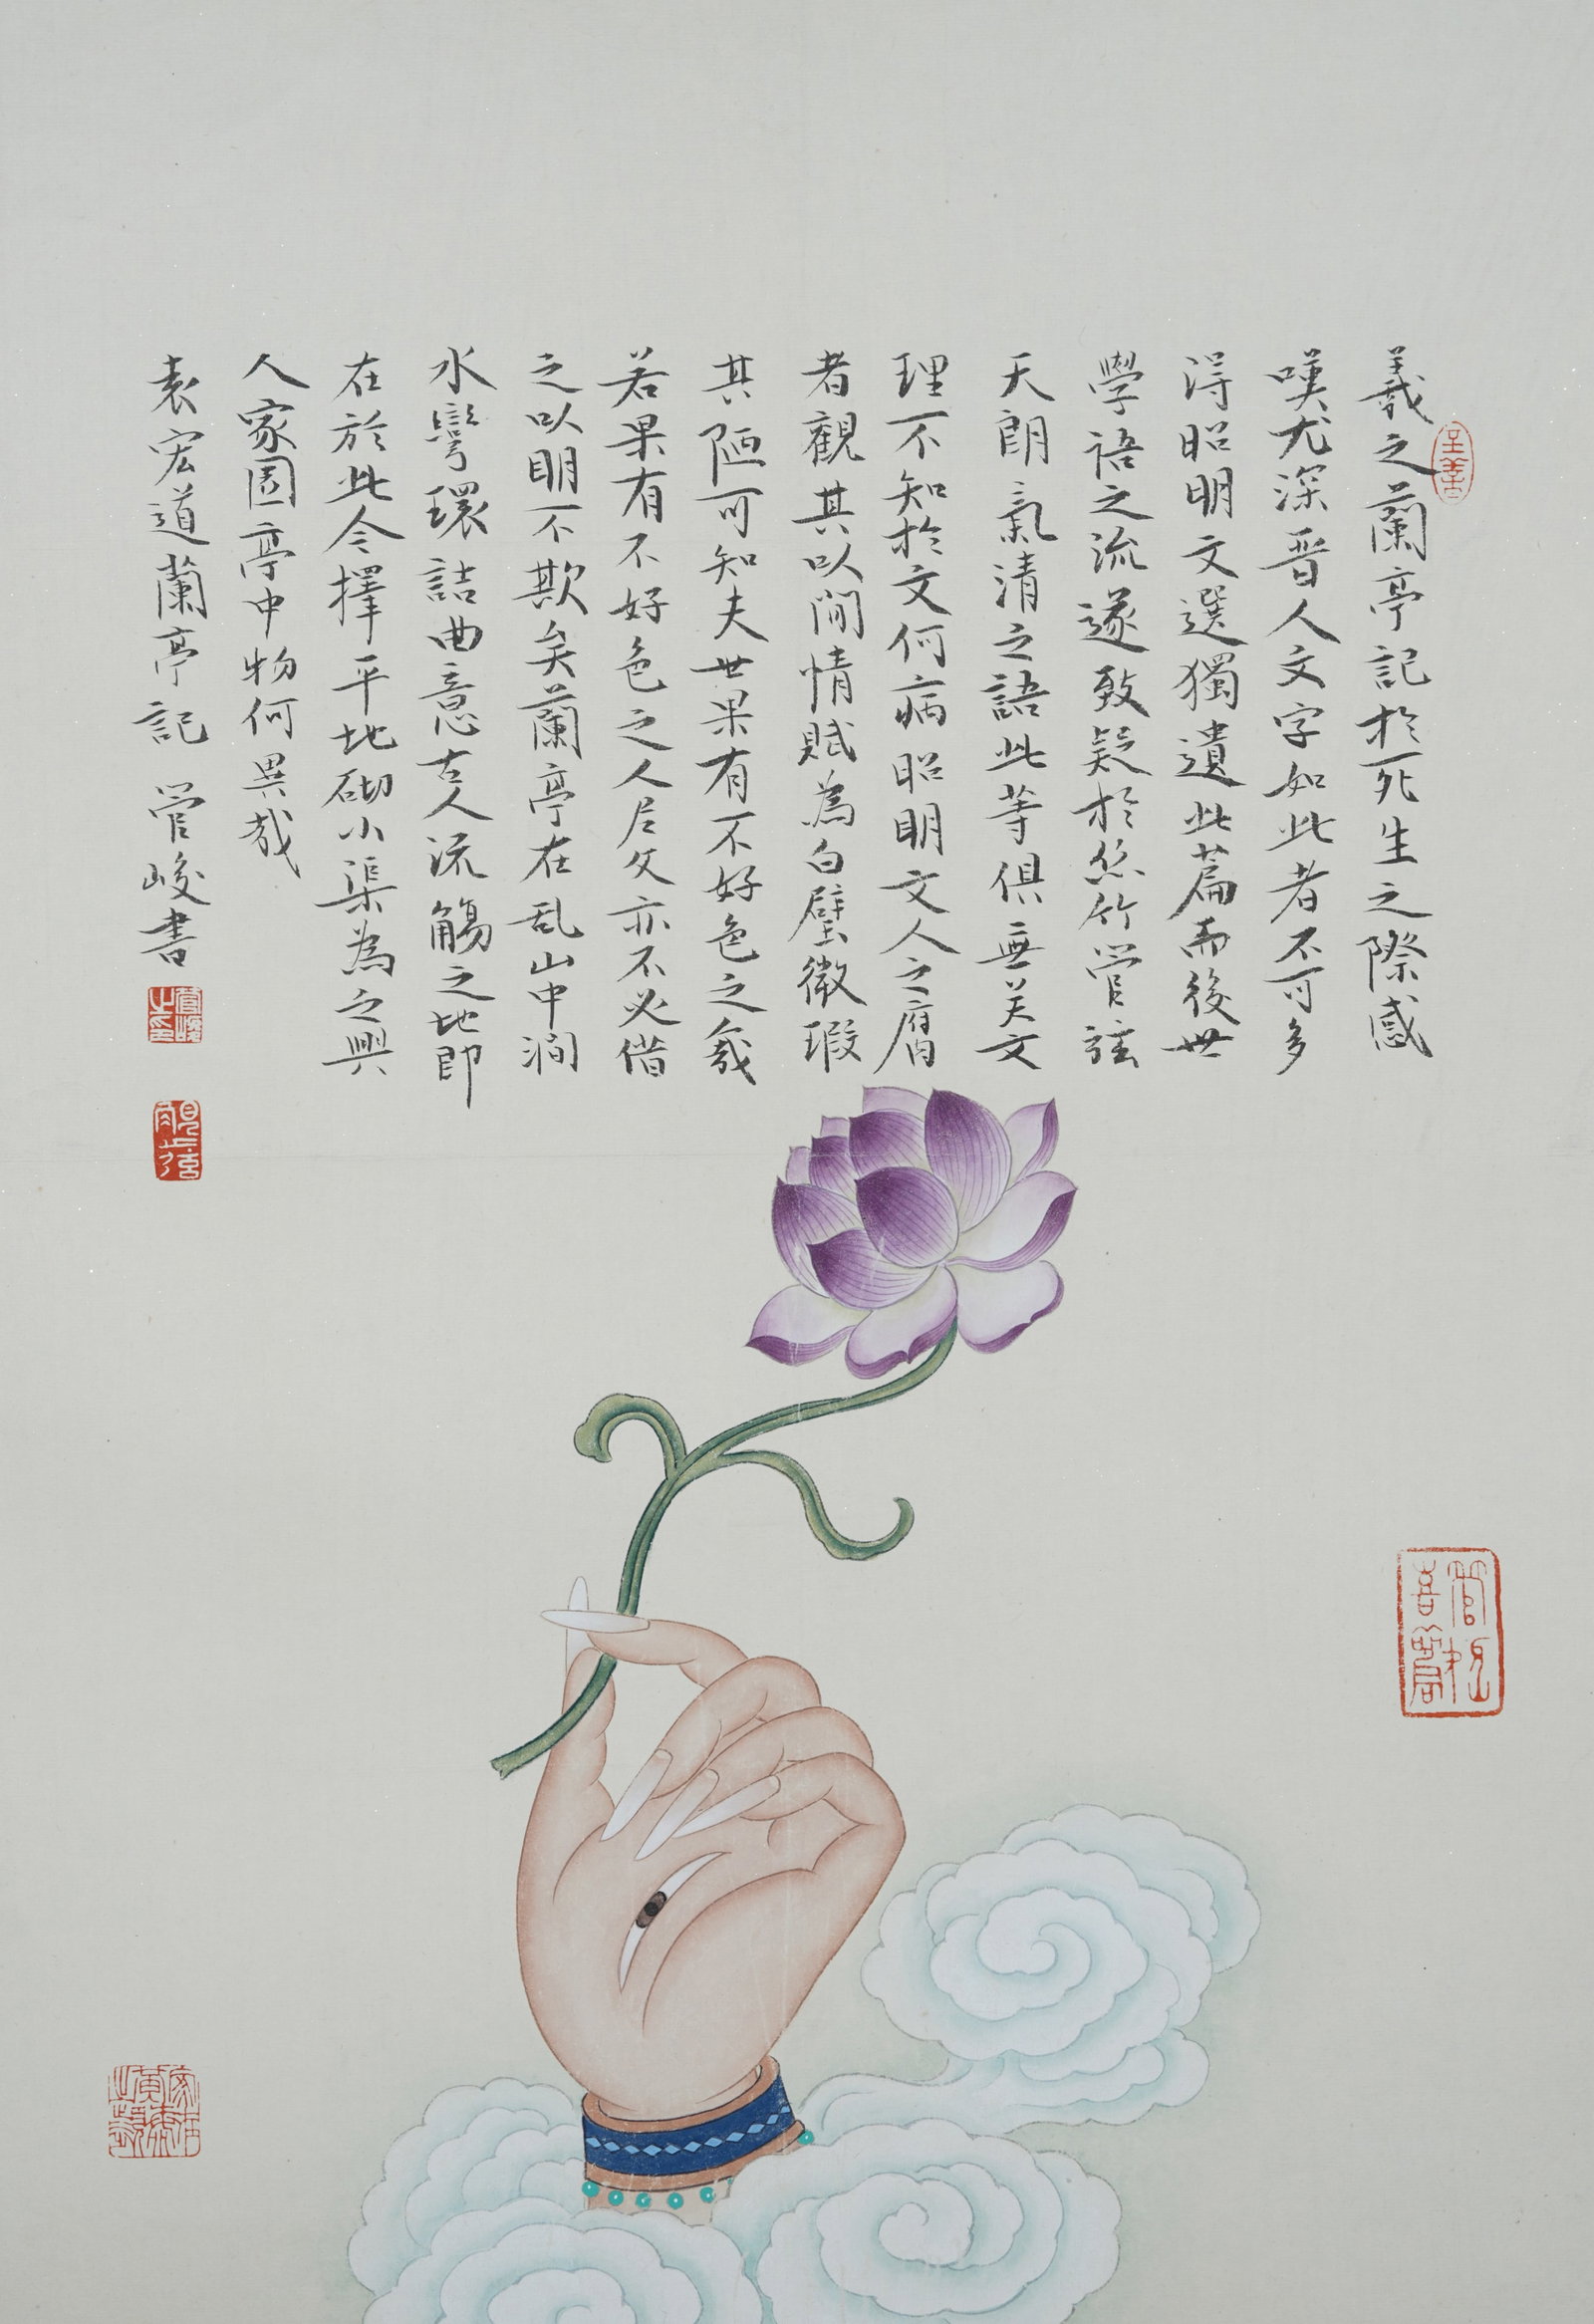 羲之蘭亭記於死生之際感
嘆尤深晋人文字如此者不可多
淂昭明文選獨遺此篇而後世
學語之流遂致疑於丝竹管弦
天朗氣清之語此等俱無关文
理不知於文何病昭明文人之腐
者觀其以閒情賦為白璧微瑕
其陋可知夫世果有不好色之人哉
若果有不好色之人尼父亦不必借
之以明不欺矣蘭亭在乱山中澗
水彎環詰曲意古人流觴之地即
在於此今擇平地砌小渠為之與
人家園亭中物何異哉
袁宏道蘭亭記 管峻書
至善
管峻之印